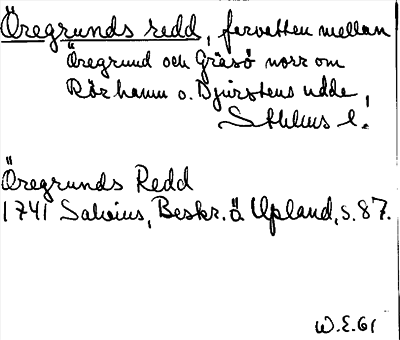 Öregrunds redd, farvatten mellan
Öregrund och Gräsö norr om
Rörhamn o. Djurstens udde,
Sthlms l.
Öregrunds Redd
1741 Salvius, Beskr. ä. Upland, s. 87.
W.E. 61